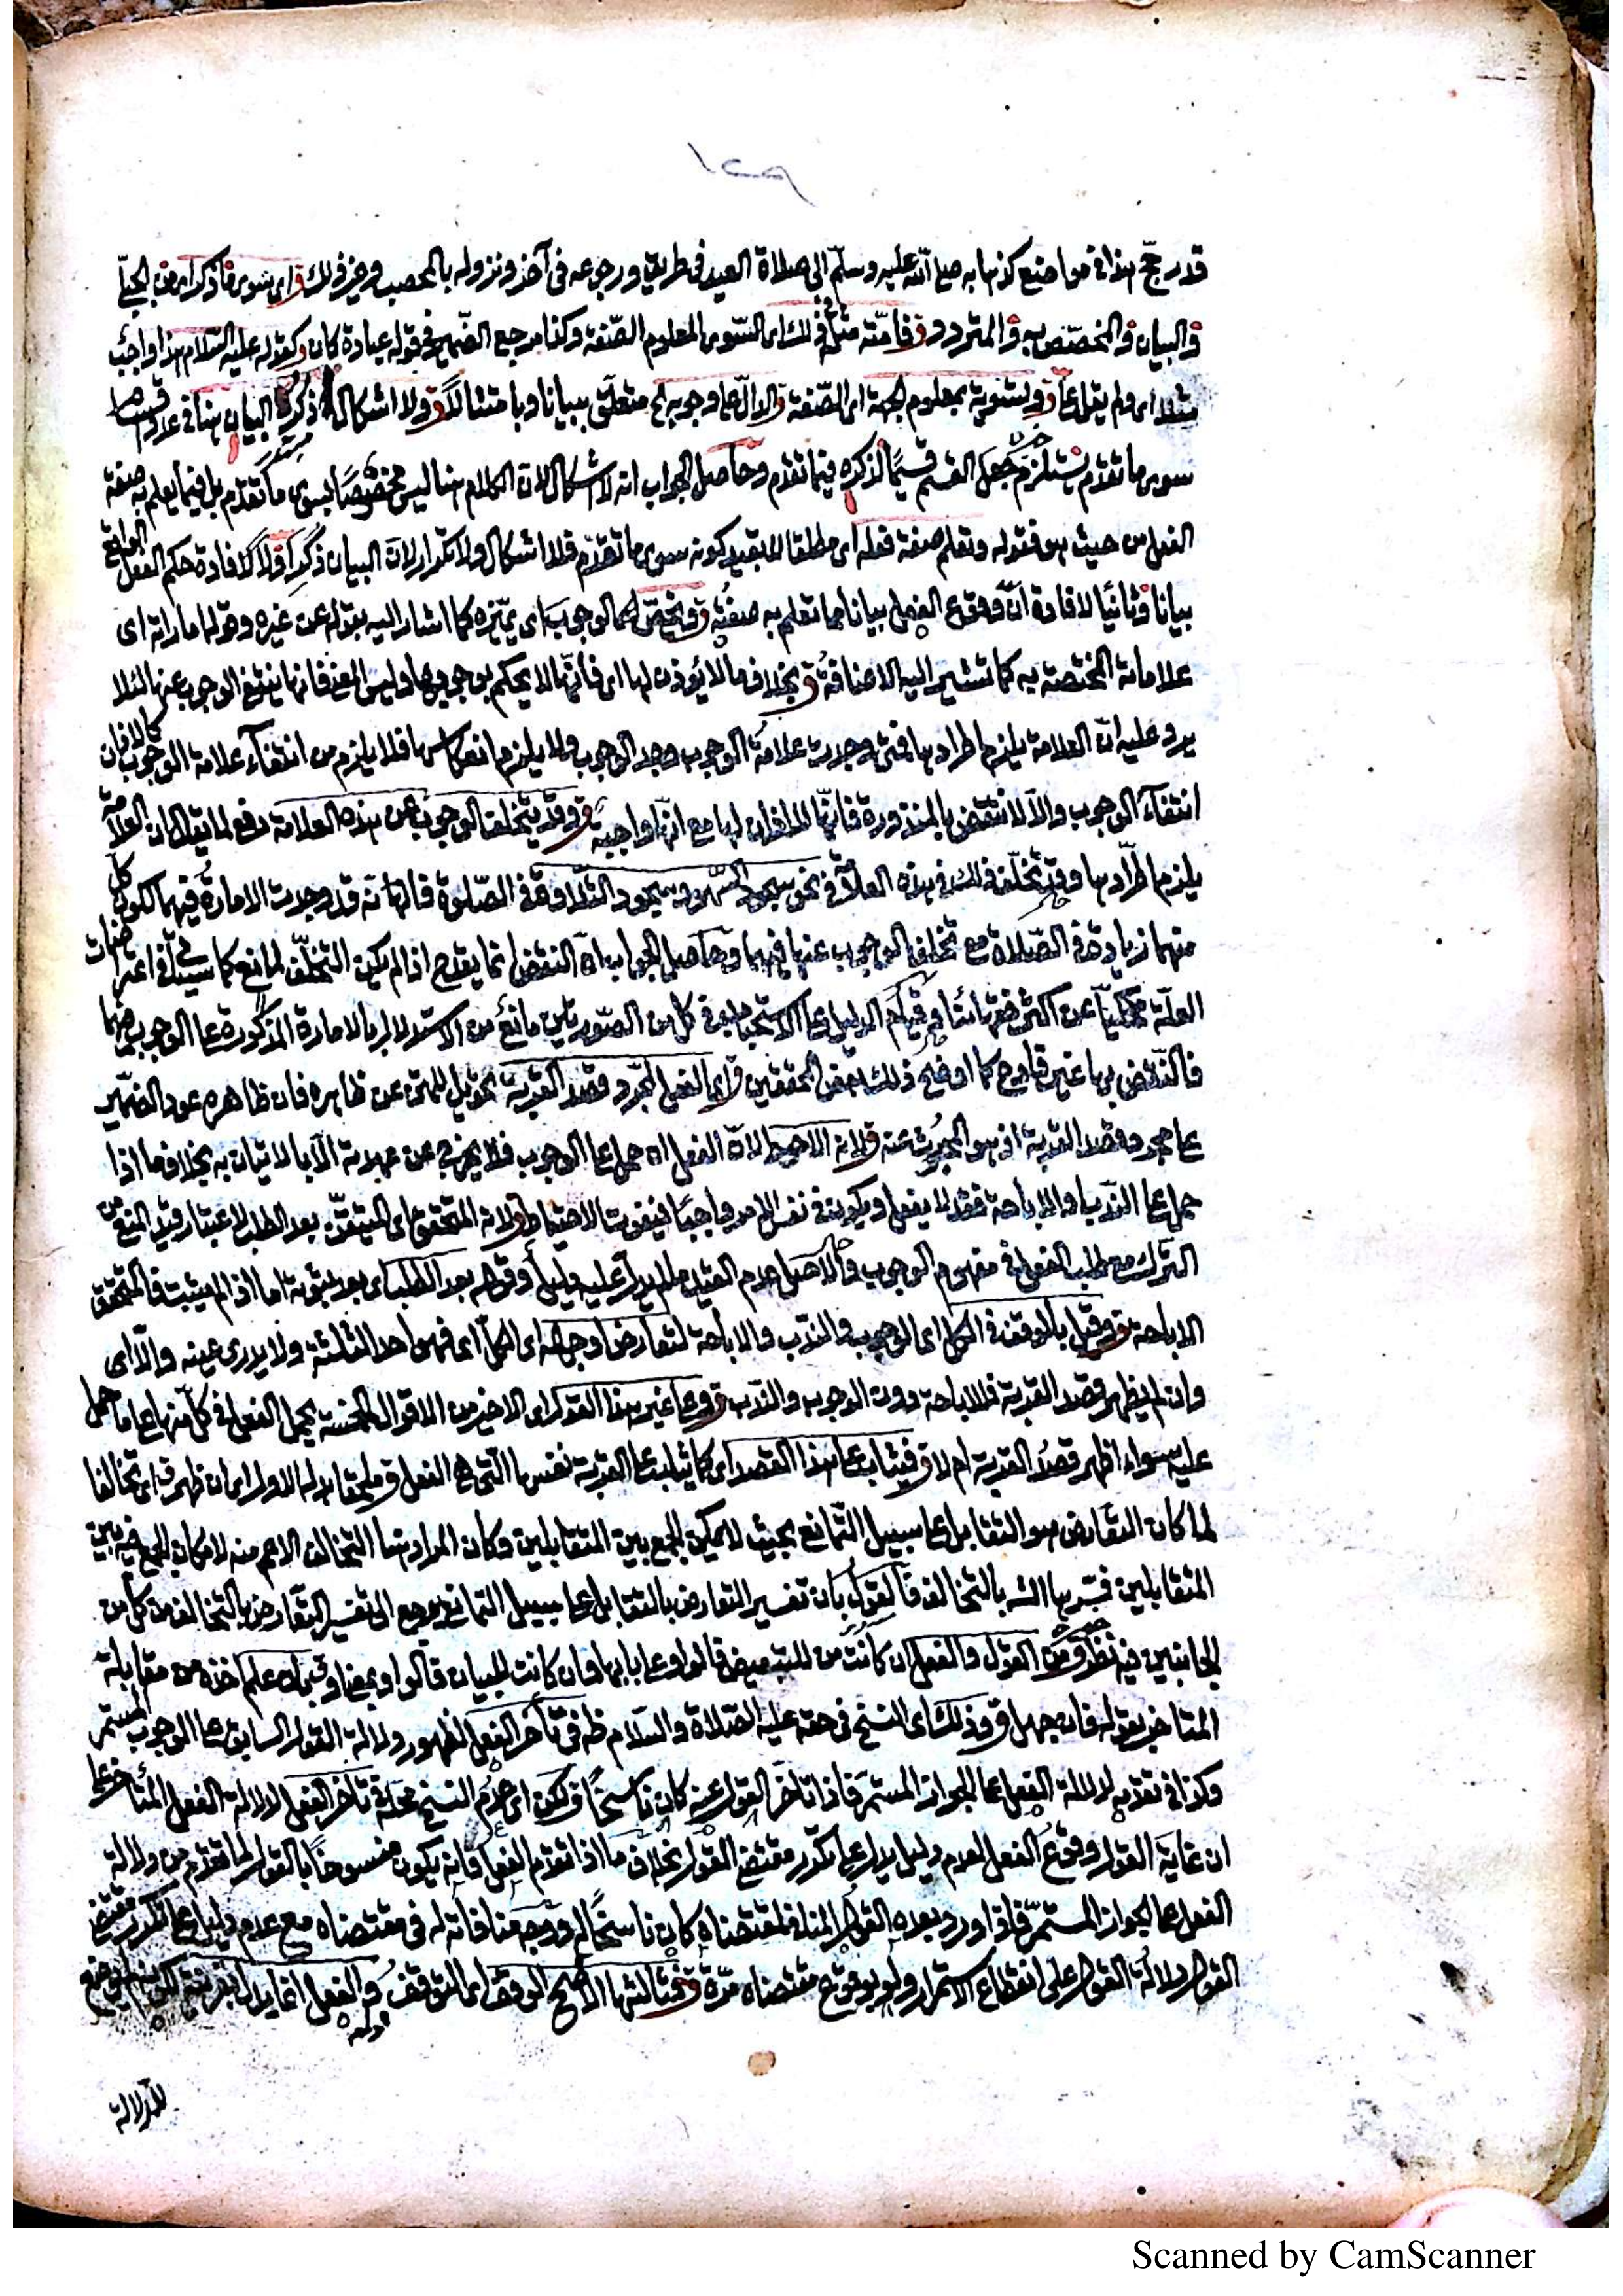 ١٢٩
قد رجح هذا في مواضع كذهابه صلى الله عليه وسلم الى صلاة العيد في طريق ورجوعه في آخر ونزوله بالمحصب وغير ذلك ق اى سوى ما ذكر اى من الجبلّى
ق والبيان ق والمخصّص به ق والمتردد ق فامّته مثله في ذلك اى السّوى المعلوم الصّفة وكذا مرجع الضّمير في قوله عبادة كان ق كقوله عليه السّلام هذا واجب
مثلا اى ولم يقل عا ق وتسوية بمعلوم الجهة اى الصّفة ق والا على وجوبه الخ متعلّق ببيانا وبامتثالا ق ولا اشكال في ذكر البيان هنا
سوى ما تقدّم يستلزم جعل القسم قسيمًا لذكره فيما تقدم وحاصل الجواب انه لا اشكال لان الكلام هنا ليس مخصوصًا بسوى ما تقدّم بل فيما يعلم به صفة
الفعل من حيث هو فقوله وتعلم صفة فعله اى مطلقا لا بقيد كونه سوى ما تقدّم فلا اشكال ولا تكرار لان البيان ذكر اوّلا لافادة حكم الفعل الواقع
بيانا وثانيا لافادة انّ وقوع الفعل بيانا مما تعلم به صفته ق ويخصّ الوجوب اى يميّزه كما اشار اليه بقوله عن غيره وقوله اماراته اى
علاماته المختصة به كما تشير اليه الاضافة ق بخلاف ما لا يؤذن لها اى فانّها لا يحكم بوجوبها وليس المعنى فانها ينتفى الوجوب عنها لئلا
يرد عليه انّ العلامة يلزم اطرادها فمتى وجدت علامة الوجوب وجد الوجوب ولا يلزم انعكاسها فلا يلزم من انتفاء علامة الوجوب كالاذان
انتفاء الوجوب والا لانتقض بالمنذورة فانّها لا اذان لها مع انها واجبة ق وقد يتخلف الوجوب عن هذه العلامة دفع لما يقال ان العلامة
يلزم اطّرادها وقد تخلّف ذلك في هذه العلامة في نحو سجود السّهو وسجود التّلاوة في الصّلوة فانه قد وجدت الامارة فيهما لكون كل
منهما زيادة في الصّلاة مع تخلف الوجوب عنها فيهما وحاصل الجواب انّ النقض انما يقدح اذا لم يكن التخلّف لمانع كما سيأتى في اعتراضات
العلّة محكيّا عن اكثر فقهائنا وقيام الدليل على الاستحباب في كل من الصّورتين مانع من الاستدلال بالامارة المذكورة على الوجوب فيهما
فالنّقض بها غير قادح كما اوضح ذلك بعض المحققين ق اى الفعل لمجرّد قصد القربة تحويل للمتن عن ظاهره فان ظاهره عود الضمير
على مجرد قصد القربة اذ هو المحدّث عنه ق لانه الاحوط لانّ الفعل ان حمل على الوجوب فلا يخرج عن عهدته الا بالاتيان به بخلاف ما اذا
حمل على النّدب او الاباحة فقد لا يفعل ويكون في نفس الامر واجبًا فيفوت الاحتياط ق لانه المتحقق اى المتيقّن بعد الطلب لاعتبار قيد المنع من
التّرك مع طلب الفعل في مفهوم الوجوب والاصل عدم القيد ما لم يدل عليه دليل وقوله بعد الطلب اى بعد ثبوته اما اذا لم يثبت فالمتحقق
الاباحة ق وقيل بالوقف في الكل اى الوجوب والنّدب والاباحة لتعارض اوجه اى الكلّ اى فهو احد الثلثة ولا يدرى عينه والّا اى
وان لم يظهر قصد القربة فالاباحة دون الوجوب والنّدب ق وعلى غير هذا القول اى الاخير من الاقوال الخمسة يحمل الفعل في كل منها على ما حمل
عليه سواء اظهر قصد القربة ام لا ق فيثاب على هذا القصد اى كما يثاب على القربة نفسها التّى هى الفعل ق اى تخالفا
لما كان التّعارض هو التقابل على سبيل التّمانع بحيث لا يمكن الجمع بين المتقابلين وكان المراد هنا التخالف الاعم منه لامكان الجمع فيه بين
المتقابلين فسّرها الشه بالتخالف فالقول بان تفسير التعارض بالتقابل على سبيل التمانع يرجع الى تفسير التّعارض بالتخالف من كل من
الجانبين فيه نظر ق من القول والفعل ان كانت من للتبعيض فالواو على بابها وان كانت للبيان فالواو بمعنى او علم اخذه من مقابلة
المتاخر بقوله فان جهل ق وذلك اى النسخ فى حقه عليه الصّلاة والسّلام ظه فى تأخر الفعل لظهور دلالة القول السابق على الوجوب المستمر
وكذا فى تقدمه لدلالة الفعل على الجواز المستمر فاذا تأخر القول عنه كان ناسخًا ق لكن اى عدم النسخ محله فى تأخر الفعل لدلالة الفعل المتأخر على
ان غاية القول وقوع الفعل لعدم دليل يدل على تكرر مقتضى القول بخلاف ما اذا تقدم الفعل فانه يكون منسوخا بالقول لما تقدم من دلالة
الفعل على الجواز المستمرّ فاذا ورد بعده القول المنافى لمقتضاه كان ناسخًا له ووجه منافاته له فى مقتضاه مع عدم دليل على تكرر مقتضى
القول دلالة القول على انقطاع الاستمرار ولو بوقوع مقتضاه مرّة ق ثالثها الاصح الوقف اى التوقف ق والفعل انما يدل بقرينة
للدلالة
Scanned by CamScanner